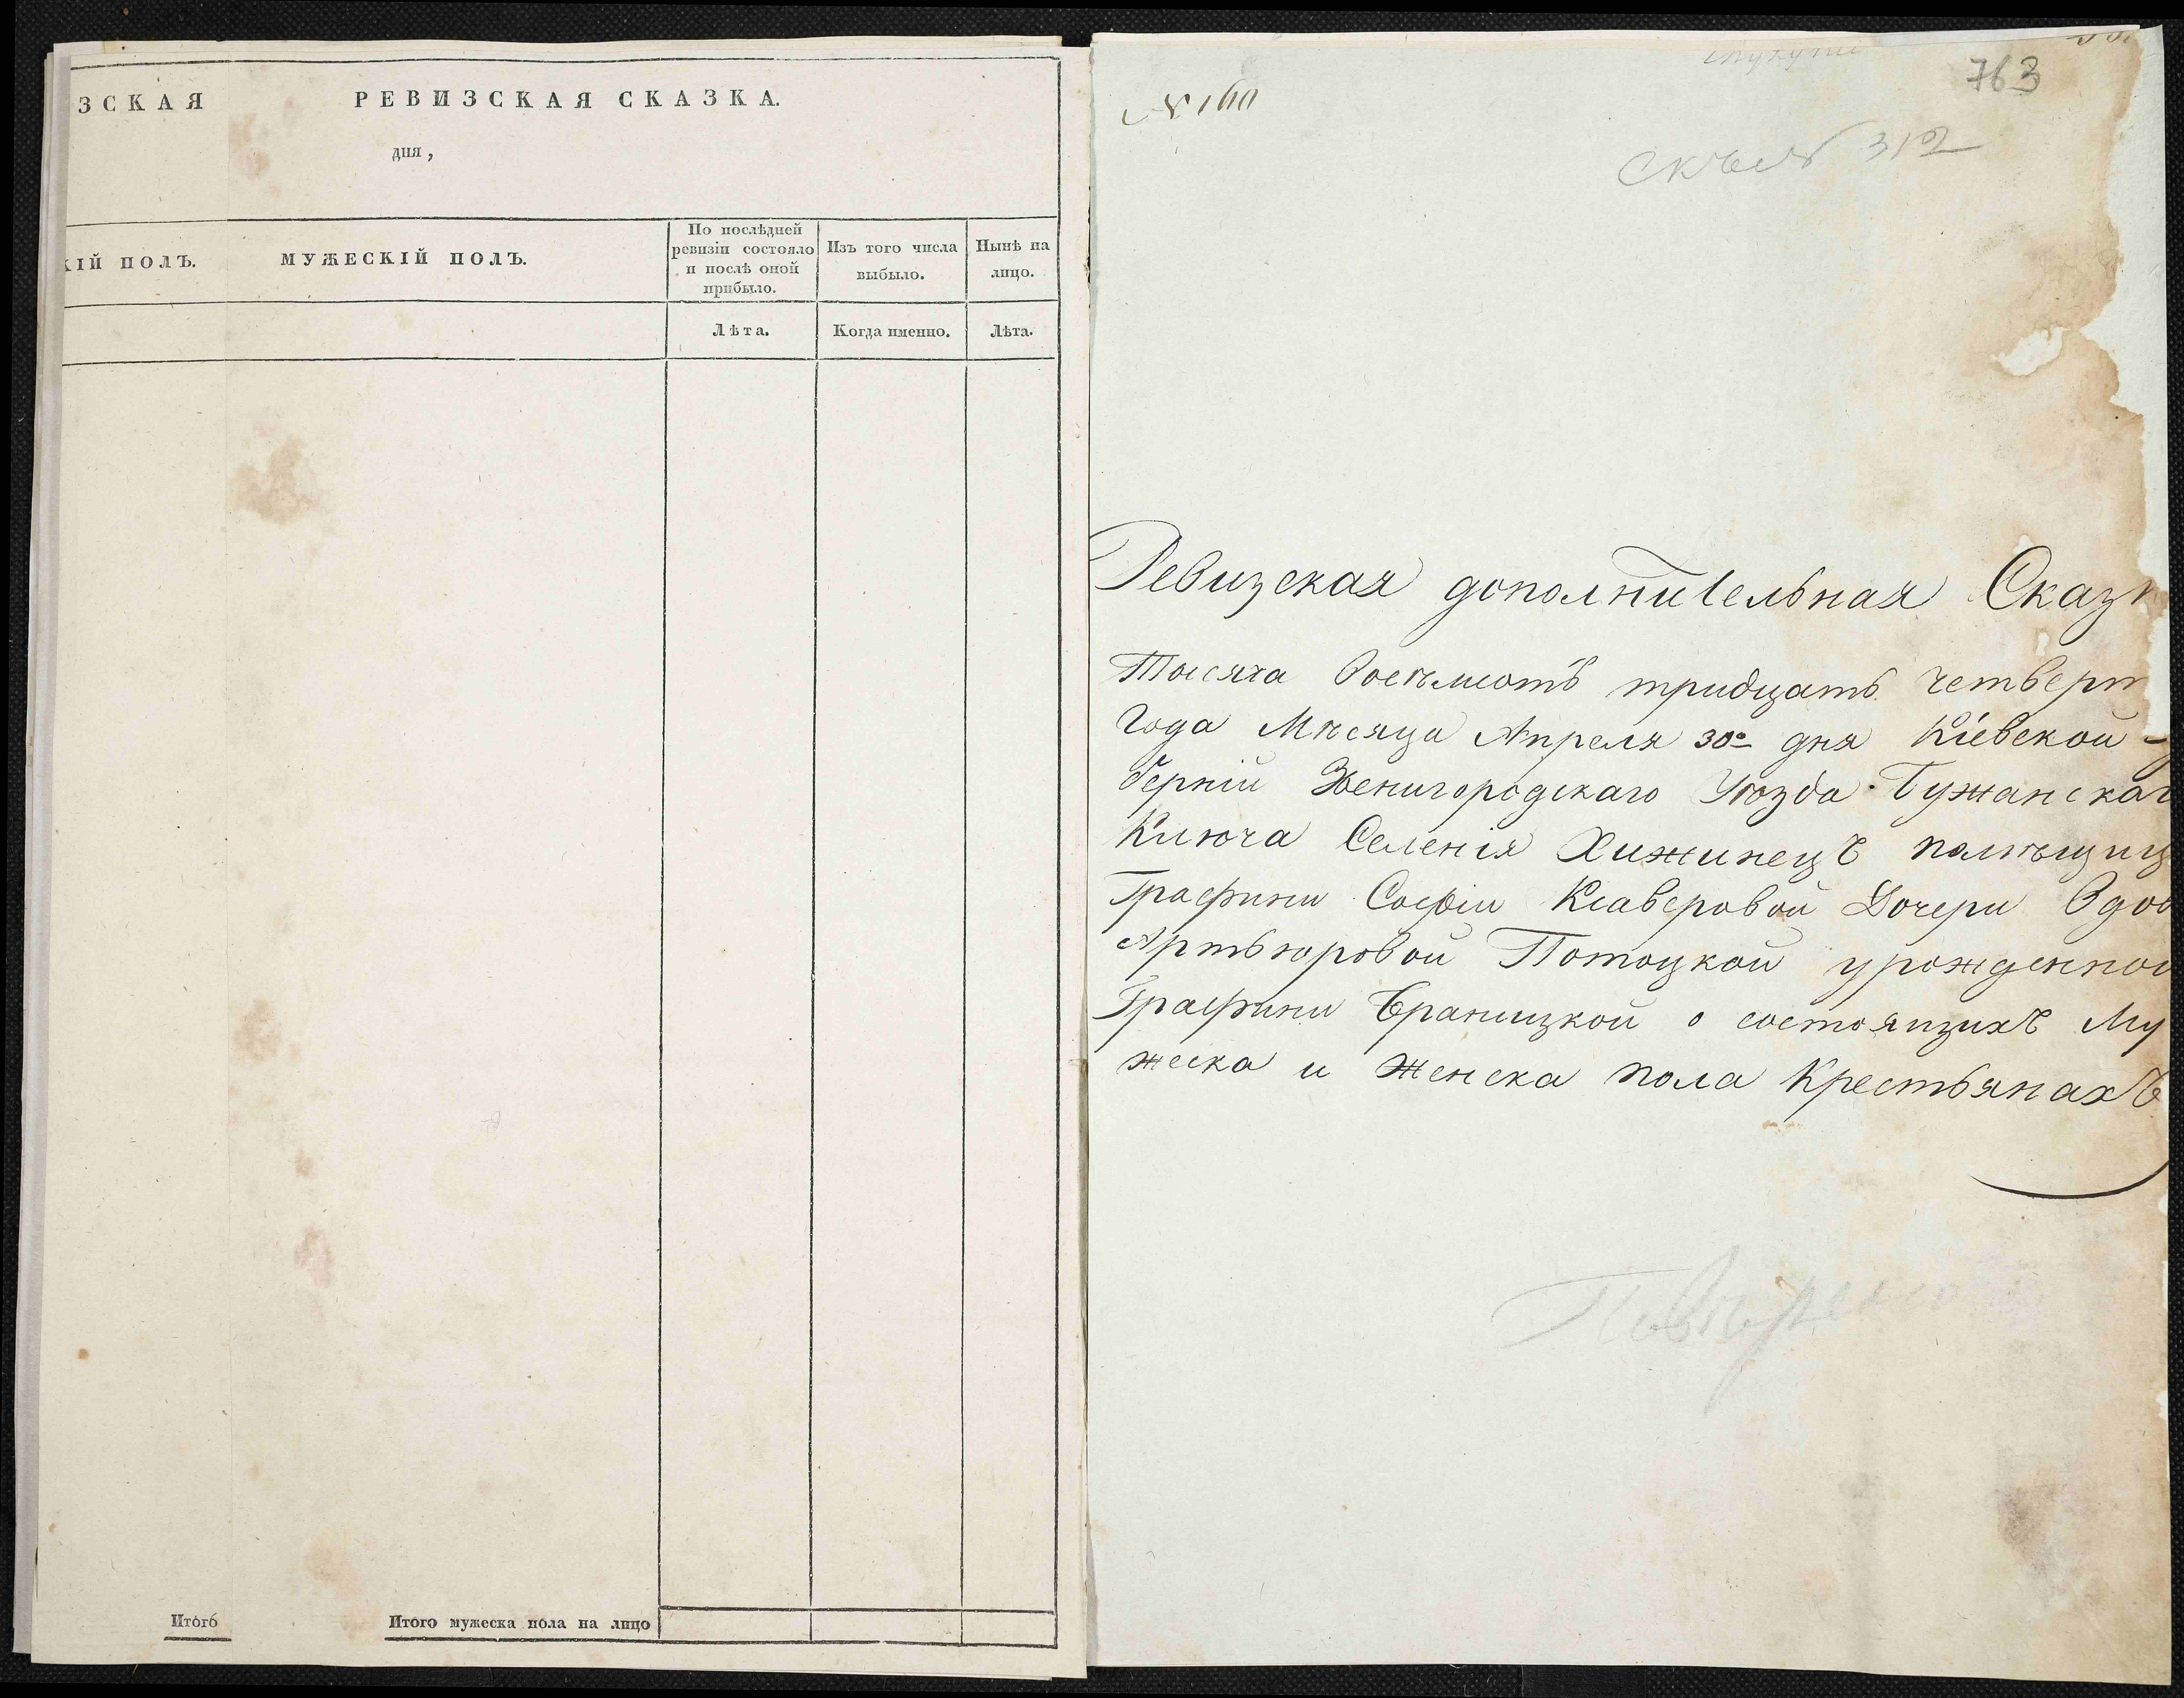 ЗСКАЯ
РЕВИЗСКАЯ СКАЗКА.
дня,
КІЙ ПОЛЪ.
МУЖЕСКІЙ ПОЛЪ.
По послѣдней
ревизіи состояло
и послѣ оной
прибыло.
Изъ того числа
выбыло.
Нынѣ на
лицо.
Лѣта.
Когда именно.
Лѣта.
Итого
Итого мужеска пола на лицо
763
№ 160
312
Ревизская дополнительная Сказк
Тысяча восемьсотъ тридцать четверт
Года Мѣсяца Апреля 30го дня Кіевской
берніи Звенигородскаго Уѣзда Бужанскаг
Ключа Селенія Хижинецъ помѣщиц
Графини Софіи Ксаверовой Дочери Вдов
Артьюровой Потоцкой урожденной
Графини Браницкой о состоящихъ Му
жеска и Женска пола Крестьянахъ